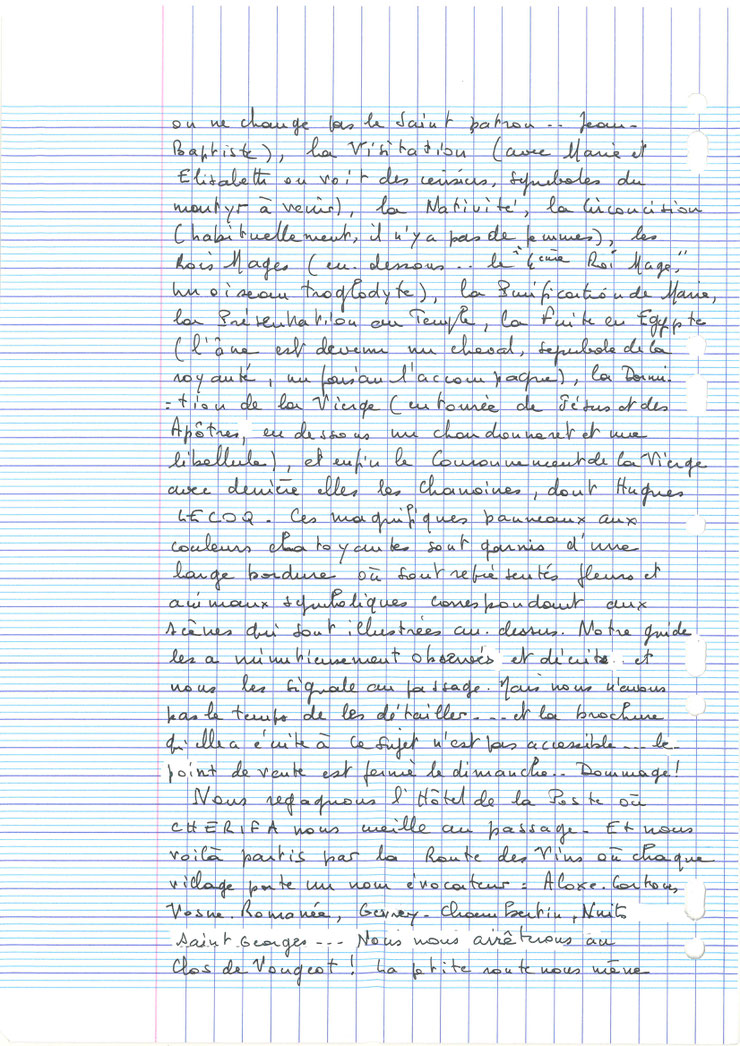 on ne change pas le Saint patron -- Jean-
Baptiste), la Visitation (avec Marie et
Elisabeth on voit des cerises, symboles du
martyr à venir), la Nativité, la Circoncision
(habituellement, il n'y a pas de femmes), les
Rois Mages (en.dessous .. le "4ème Roi Mage",
un oiseau troglodyte), la Purification de Marie,
la Présentation au Temple, la Fuite en Egypte
(l'âne est devenu un cheval, symbole de la
royauté, un faisan l'accompagne), la Dormi-
=tion de la Vierge (entourée de Jésus et des
Apôtres, en dessous un chardonneret et une
libellule), et enfin le Couronnement de la Vierge
avec derrière elles les chanoines, dont Hugues
LECOQ. Ces magnifiques panneaux aux
couleurs chatoyantes sont garnis d'une
large bordure où sont représentés fleurs et
animaux symboliques correspondant aux
scènes qui sont illustrées au.dessus. Notre guide
les a minutieusement observés et décrits.. et
nous les signale au passage. Mais nous n'avons
pas le temps de les détailler --- et la brochure
qu'elle a écrite à ce sujet n'est pas accessible --- le
point de vente est fermé le dimanche.. Dommage!
Nous regagnons l'Hôtel de la Poste où
CHERIFA nous cueille au passage. Et nous
voilà partis par la Route des Vins où chaque
village porte un nom évocateur : Aloxe.Corton,
Vosne.Romanée, Gevrey-Chambertin, Nuits
Saint Georges --- Nous nous arrêterons au
Clos de Vougeot ! La petite route nous mène